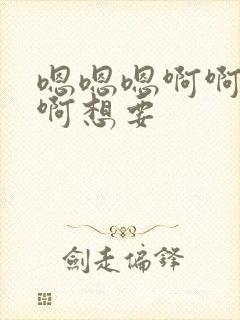 嗯嗯嗯啊啊
啊想要
剑走偏锋